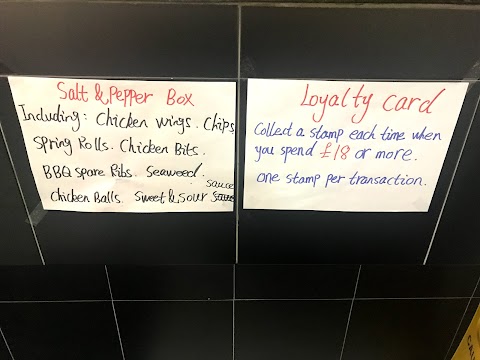 Salt & Pepper Box
Including: Chicken wings. Chips
Spring Rolls. Chicken Bits.
BBQ Spare Ribs. Seaweed.
sauce
Chicken Balls. Sweet & Sour
Loyalty card
Collect a stamp each time when
you spend £18 or more.
one stamp per transaction.